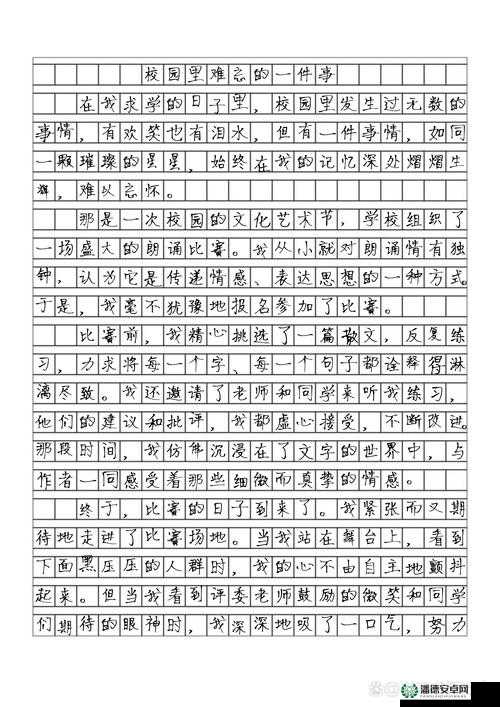 校园里难忘的一件事
在我求学的日子里，校园里发生过无数的
事情，有欢笑也有泪水，但有一件事情，如同
一颗璀璨的星星，始终在我的记忆深处熠熠生
辉，难以忘怀。
那是一次校园的文化艺术节，学校组织了
一场盛大的朗诵比赛。我从小就对朗诵情有独
钟，认为它是传递情感、表达思想的一种方式。
于是，我毫不犹豫地报名参加了比赛。
比赛前，我精心挑选了一篇散文，反复练
习，力求将每一个字、每一个句子都诠释得淋
漓尽致。我还邀请了老师和同学来听我练习，
他们的建议和批评，我都虚心接受，不断改进。
那段时间，我仿佛沉浸在了文字的世界中，与
作者一同感受着那些细微而真挚的情感。
终于，比赛的日子到来了。我紧张而又期
待地走进了比赛场地。当我站在舞台上，看到
下面黑压压的人群时，我的心不由自主地颤抖
起来。但当我看到评委老师鼓励的微笑和同学
们期待的眼神时，我深深地吸了一口气，努力
潘德安卓网